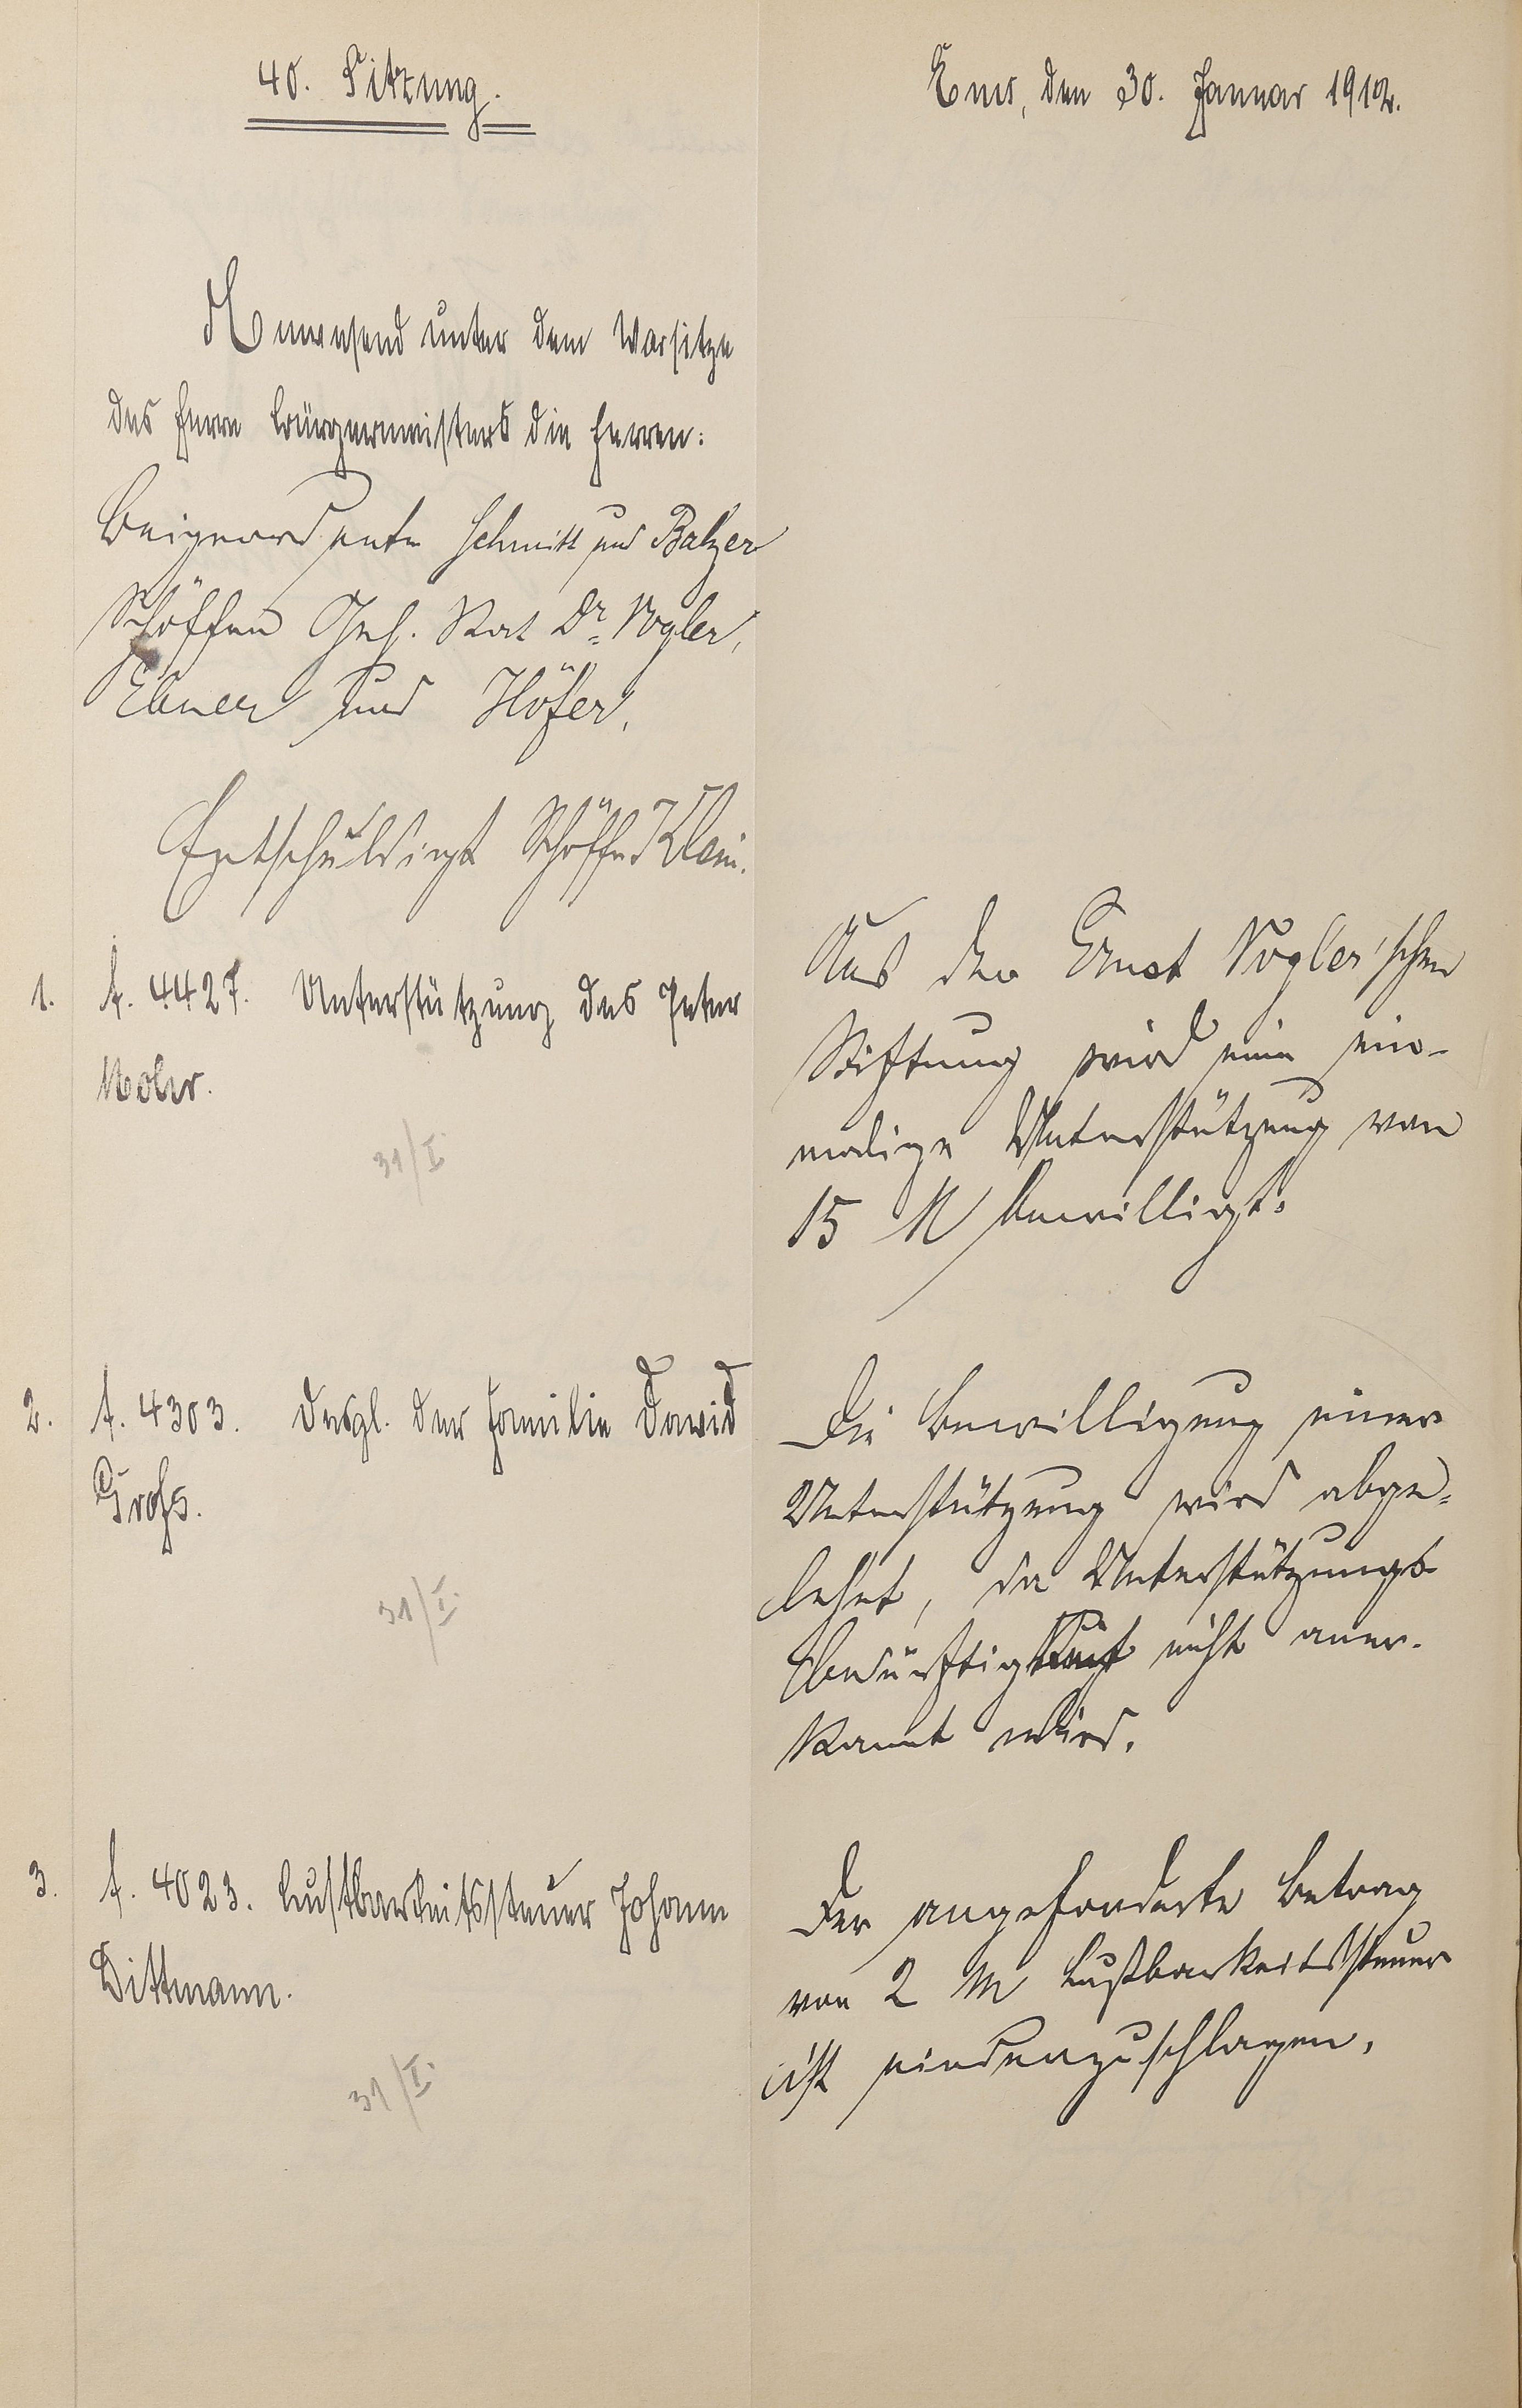 40. Sitzung.
Ems, den 30. Januar 1912.
Anwesend unter dem Vorsitze
des Herrn Bürgermeisters die Herren:
Beigeordnete Schmitt und Balzer
Schöffen Geh. Rat Dr. Vogler,
Ebner und Höfer.
Entschuldigt Schöffe Klein.
1. J. 4427. Unterstützung des Peter
Mohr.
31/I.
Aus der Ernst Vogler'schen
Stiftung wird eine ein-
malige Unterstützung von
15 M bewilligt.
2. J. 4303. Desgl. der Familie David
Groß.
31/I.
Die Bewilligung einer
Unterstützung wird abge-
lehnt, da Unterstützungs
bedürftigkeit nicht aner-
kannt wird.
3. J. 4023. Lustbarkeitssteuer Johann
Dittmann.
31/I.
Der angeforderte Betrag
von 2 M Lustbarkeitssteuer
ist niederzuschlagen.